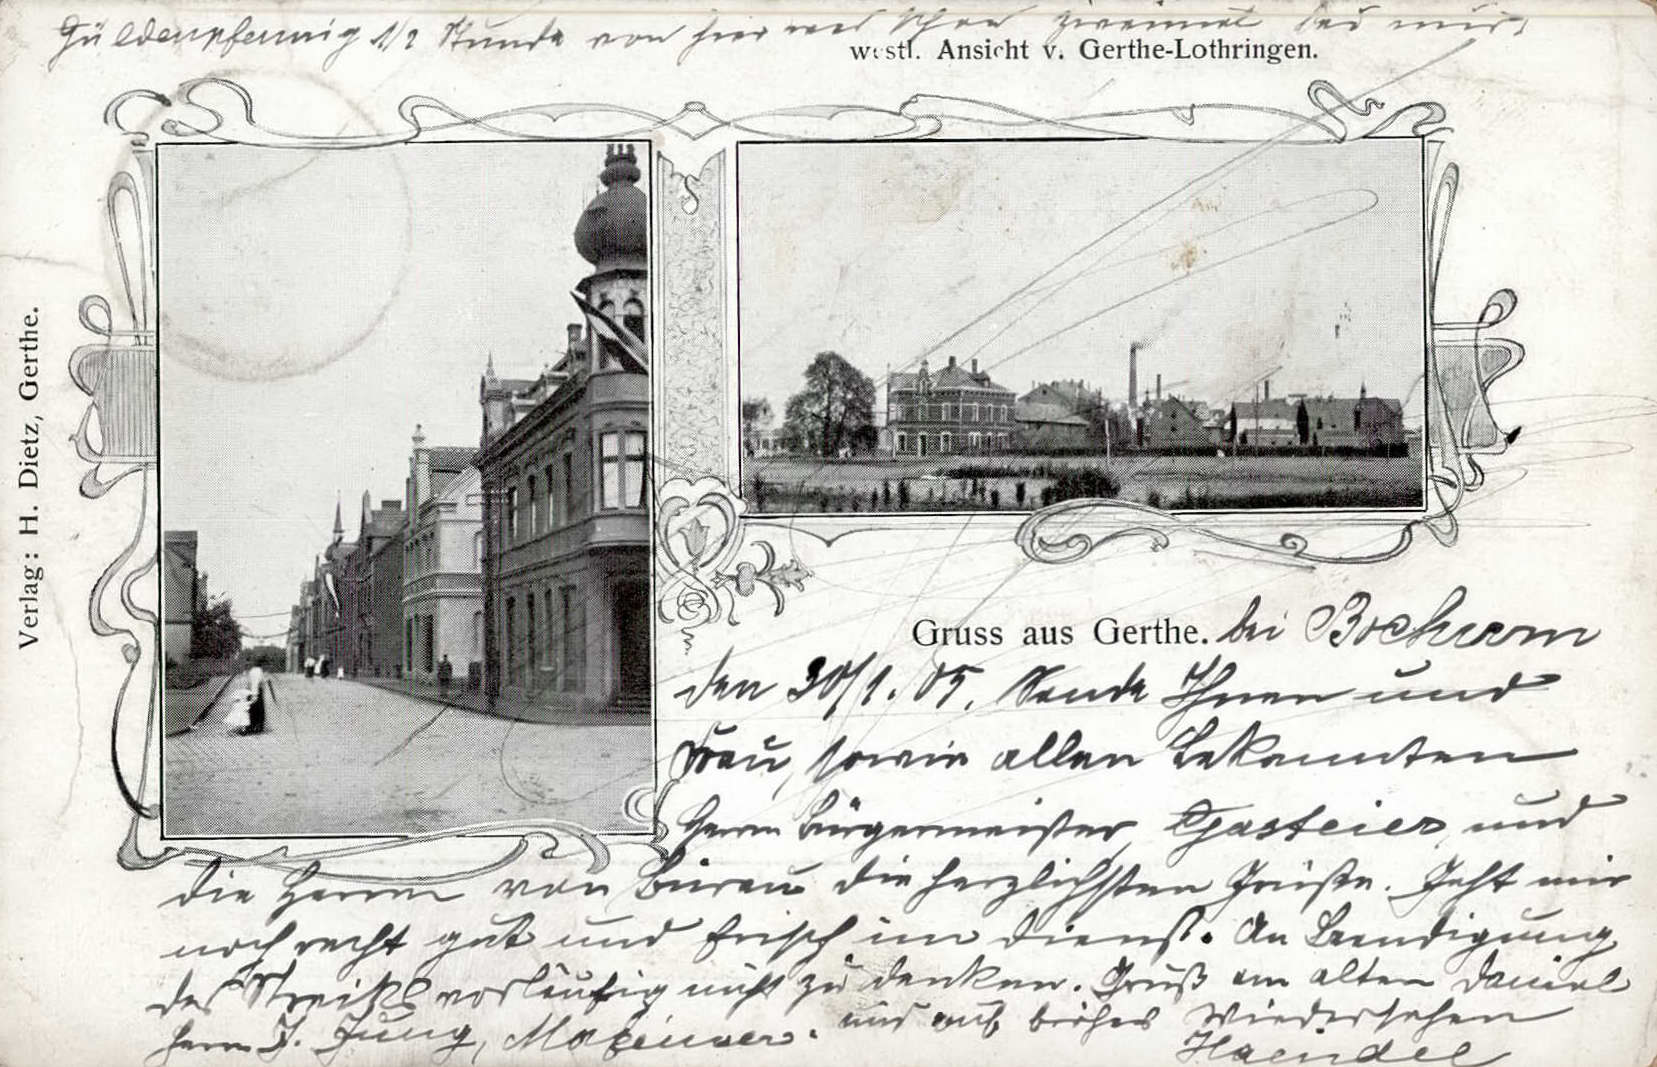 Güldenpfennig 1/2 Stunde von hier war schon zweimal bei mir.
westl. Ansicht v. Gerthe-Lothringen.
Verlag: H. Dietz, Gerthe.
Gruss aus Gerthe. bei Bochum
den 30/1. 05. Sende Ihnen und
Frau, sowie allen Bekannten
Herrn Bürgermeister, Gasteier, und
die Herrn von Büreau die herzlichsten Grüße. Geht mir
noch recht gut und frisch im Dienst. An Beendigung
des Streiks vorläufig nicht zu denken. Gruß an alten Daniel
Herrn J. Jung, und auf Wiedersehen
Haendel